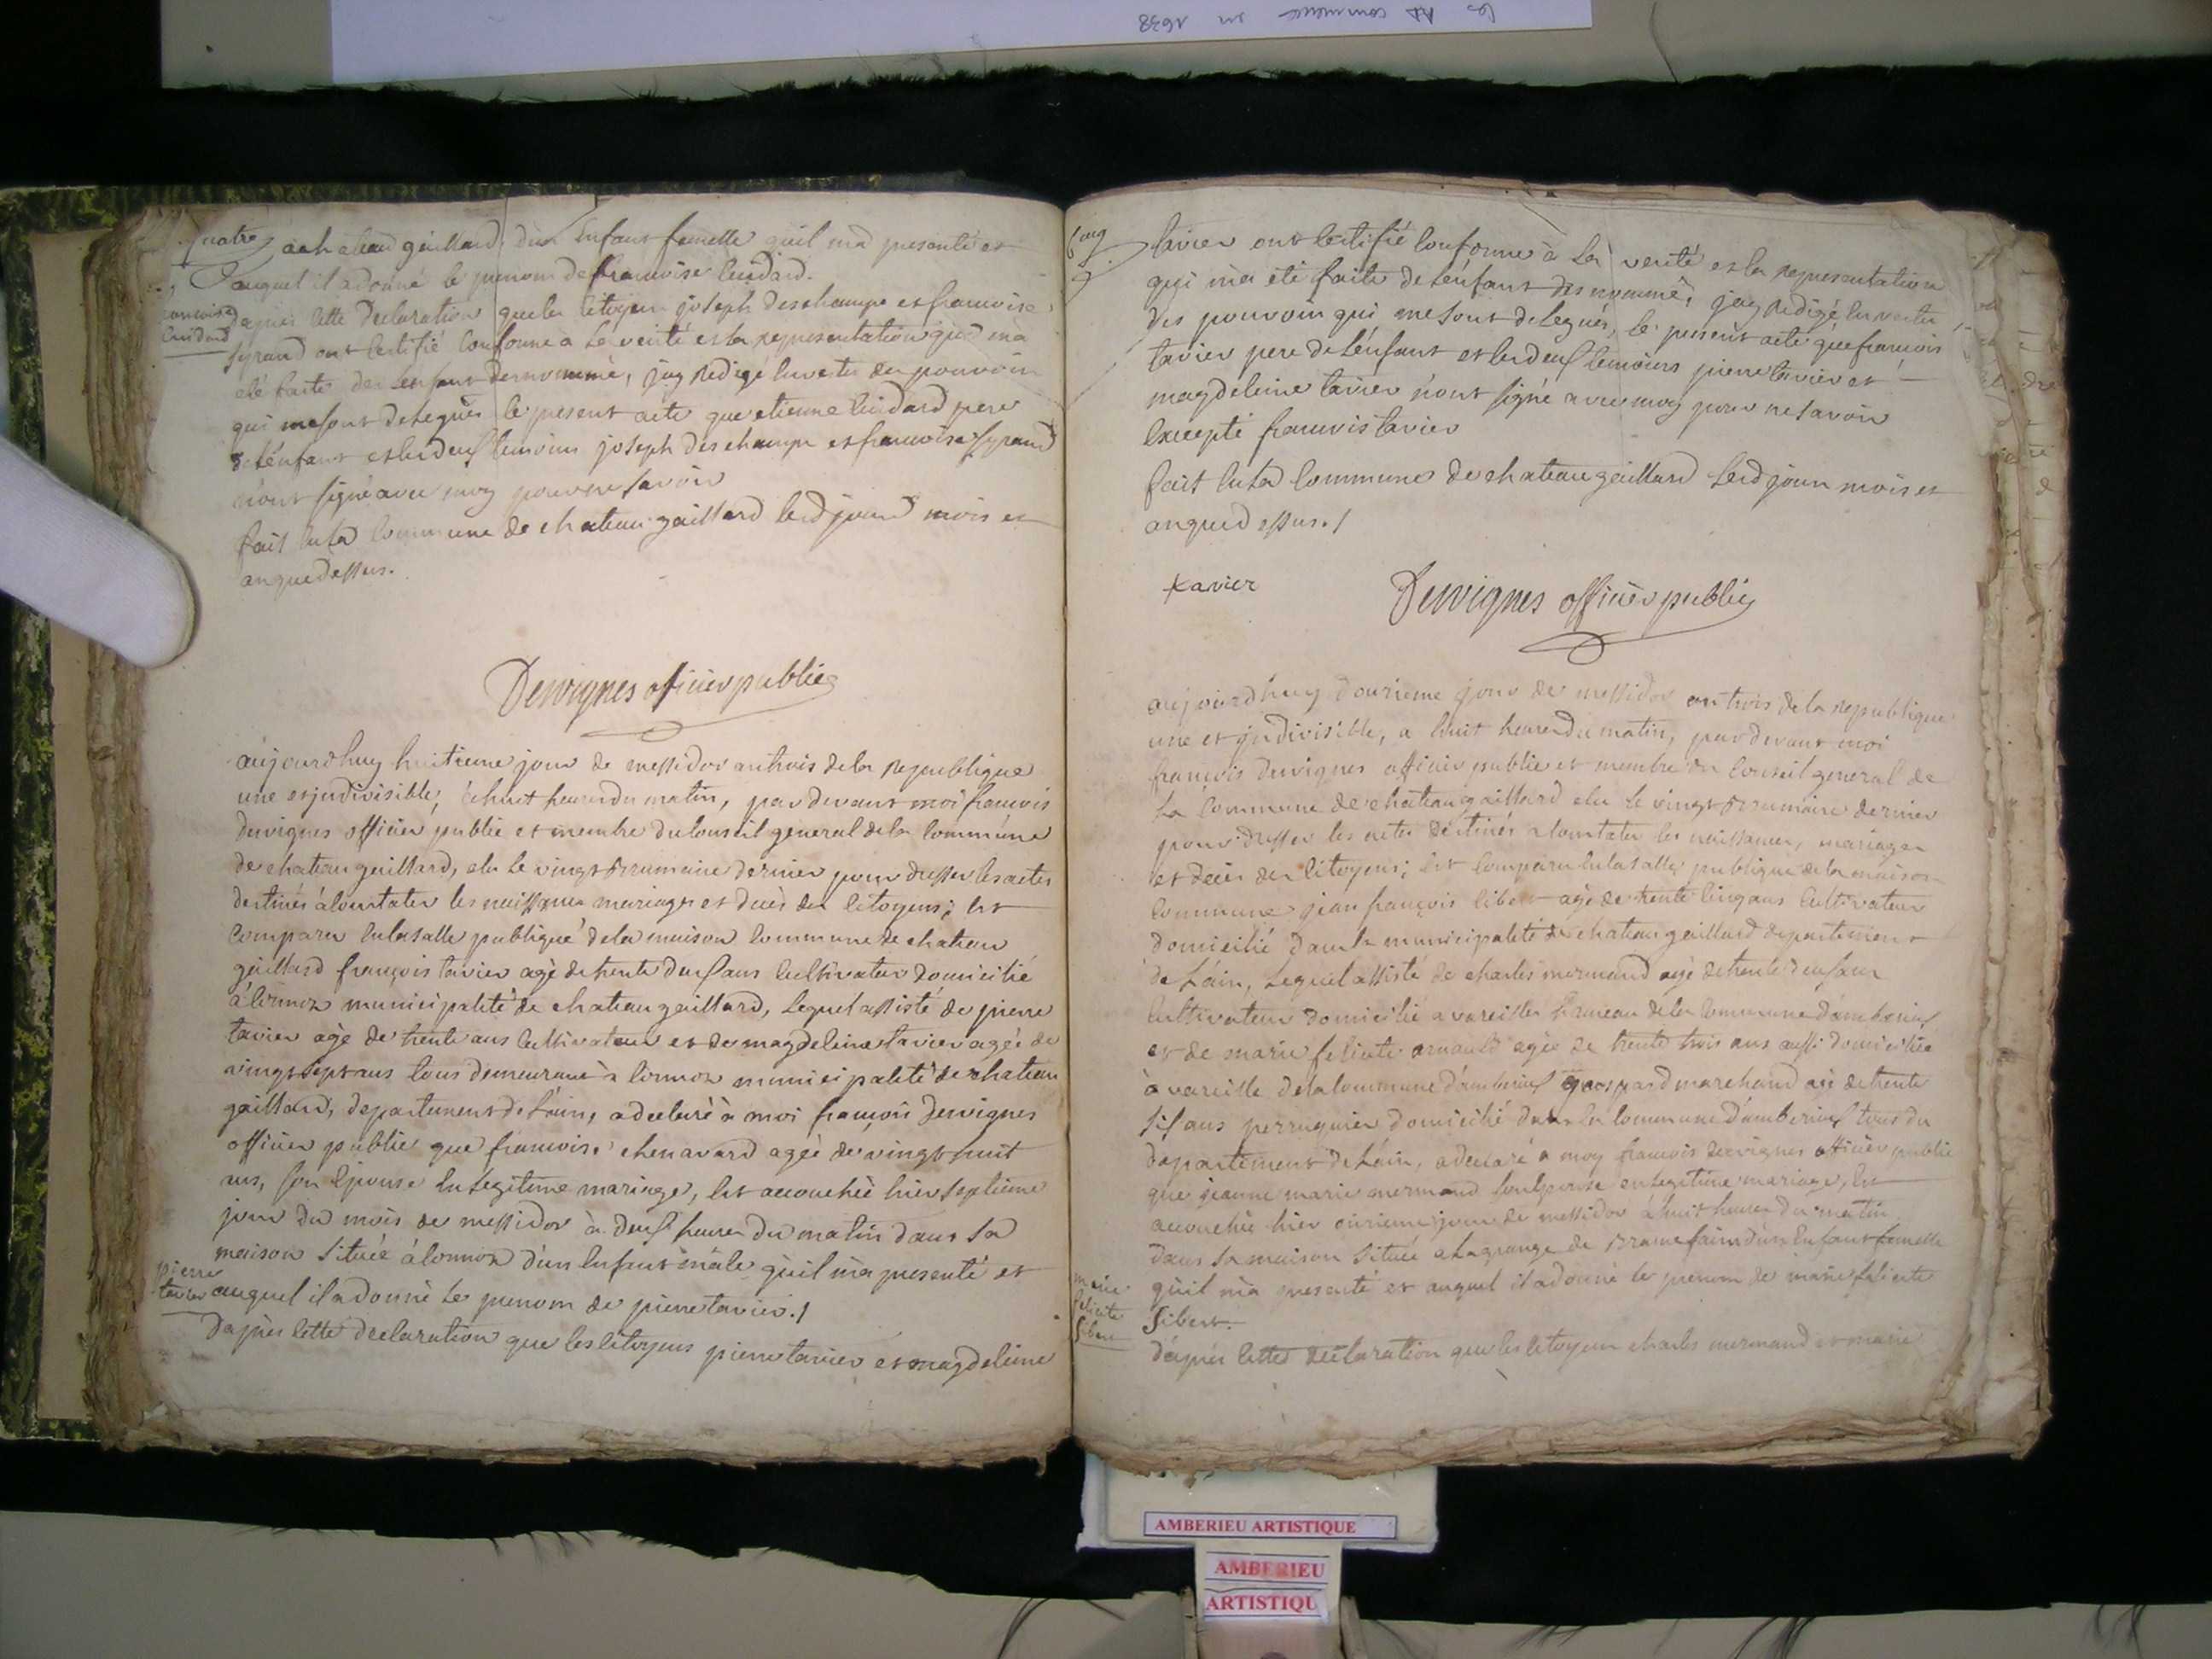 Les AD commence en 1638
quatre
à chateau gaillard, d'un Enfant femelle quil ma presenté et
auquel il a donné le prenom de francoise cuidard.
francoise
cuidard
dapres cette declaration que les citoyen joseph deschamps et francoise
syrand ont certifié conforme a la verité et la representation qui ma
eté faite de lenfant denommé, jay redigé en vertu des pouvoir
qui me sont delegués le present acte que etienne cuidard pere
de lénfant et les deux temoins joseph deschamps et francoise syrand
n'ont signé avec moy pour ne savoir
fait en la commune de chateau gaillard led jour mois et
an que dessus.
Dervignes officier public
aujourdhuy huitieme jour de messidor an trois de la republique
une et jndivisible, à huit heures du matin, par devant moi francois
dervignes officier public et membre du conseil general de la commune
de chateau gaillard, elu le vingt brumaire dernier pour dresser les actes
destinés à constater les naissances mariages et decès des citoyens; est
comparu en la salle publique de la maison commune de chateau
gaillard françois tavier agé de trente deux ans cultivateur domicilié
à municipalité de chateau gaillard, lequel assisté de pierre
tavier agé de trente ans cultivateur et de magdeleine tavier agée de
vingt sept ans tous demeurant à municipalité de chateau
gaillard, departement de Láin, a declaré à moi françois dervignes
officier public que francoise chenavard agée de vingt huit
ans, son Epouse en legitime mariage, est accouchée hier septieme
jour du mois de messidor à deux heures du matin dans sa
maison située à d'un Enfant mâle qu'il m'a presenté et
pierre
tavier
auquel il a donné le prenom de pierre tavier./
Dapres cette declaration que les citoyens pierre tavier et magdeleine
cinq
tavier ont certifié conforme à la verité et la representation
qui m'a eté faite de Lénfant denommé, jay redigé en vertu
des pouvoir qui me sont delegués, le present acte que francois
tavier pere de Lénfant et les deux temoins pierre tavier et
magdeleine tavier n'ont signé avec moy pour ne savoir
Excepté francois tavier
fait en la commune de chateau gaillard led jour mois et
an que dessus./
tavier
Dervignes officier public
aujourdhuy douzieme jour de messidor an trois de la republique
une et jndivisible, a huit heures du matin, par devant moi
françois dervignes officier public et membre du conseil general de
la Commune de chateau gaillard elu le vingt brumaire dernier
pour dresser les actes destinés a constater les naissances, mariages
et decès des citoyens; est comparu en la salle publique de la maison
commune jean françois sibert agé de trente cinq ans cultivateur
domicilié dans la municipalité de chateau gaillard departement
de Láin, Lequel assisté de charles mermand agé de trente deux ans
cultivateur domicilié a vareilles hameau de la commune d'amberieux
et de marie felicite arnauld agée de trente trois ans aussi domiciliée
à vareille de la commune d'amberieux gaspard marchand agé de trente
six ans perruquier domicilié dans la commune d'amberieux tous du
departement de Láin, a declaré a moy francois dervignes officier public
que jeanne marie mermand son Epouse en legitime mariage, est
accouchée hier onzieme jour de messidor à huit heures du matin
dans sa maison située a Lagrange de bramefaim d'un Enfant femelle
quil m'a presenté et auquel il a donné le prenom de marie felicite
marie
felicite
sibert
Sibert.
d'apres cette declaration que les citoyens charles mermand et marie
AMBERIEU ARTISTIQUE
AMBERIEU
ARTISTIQU